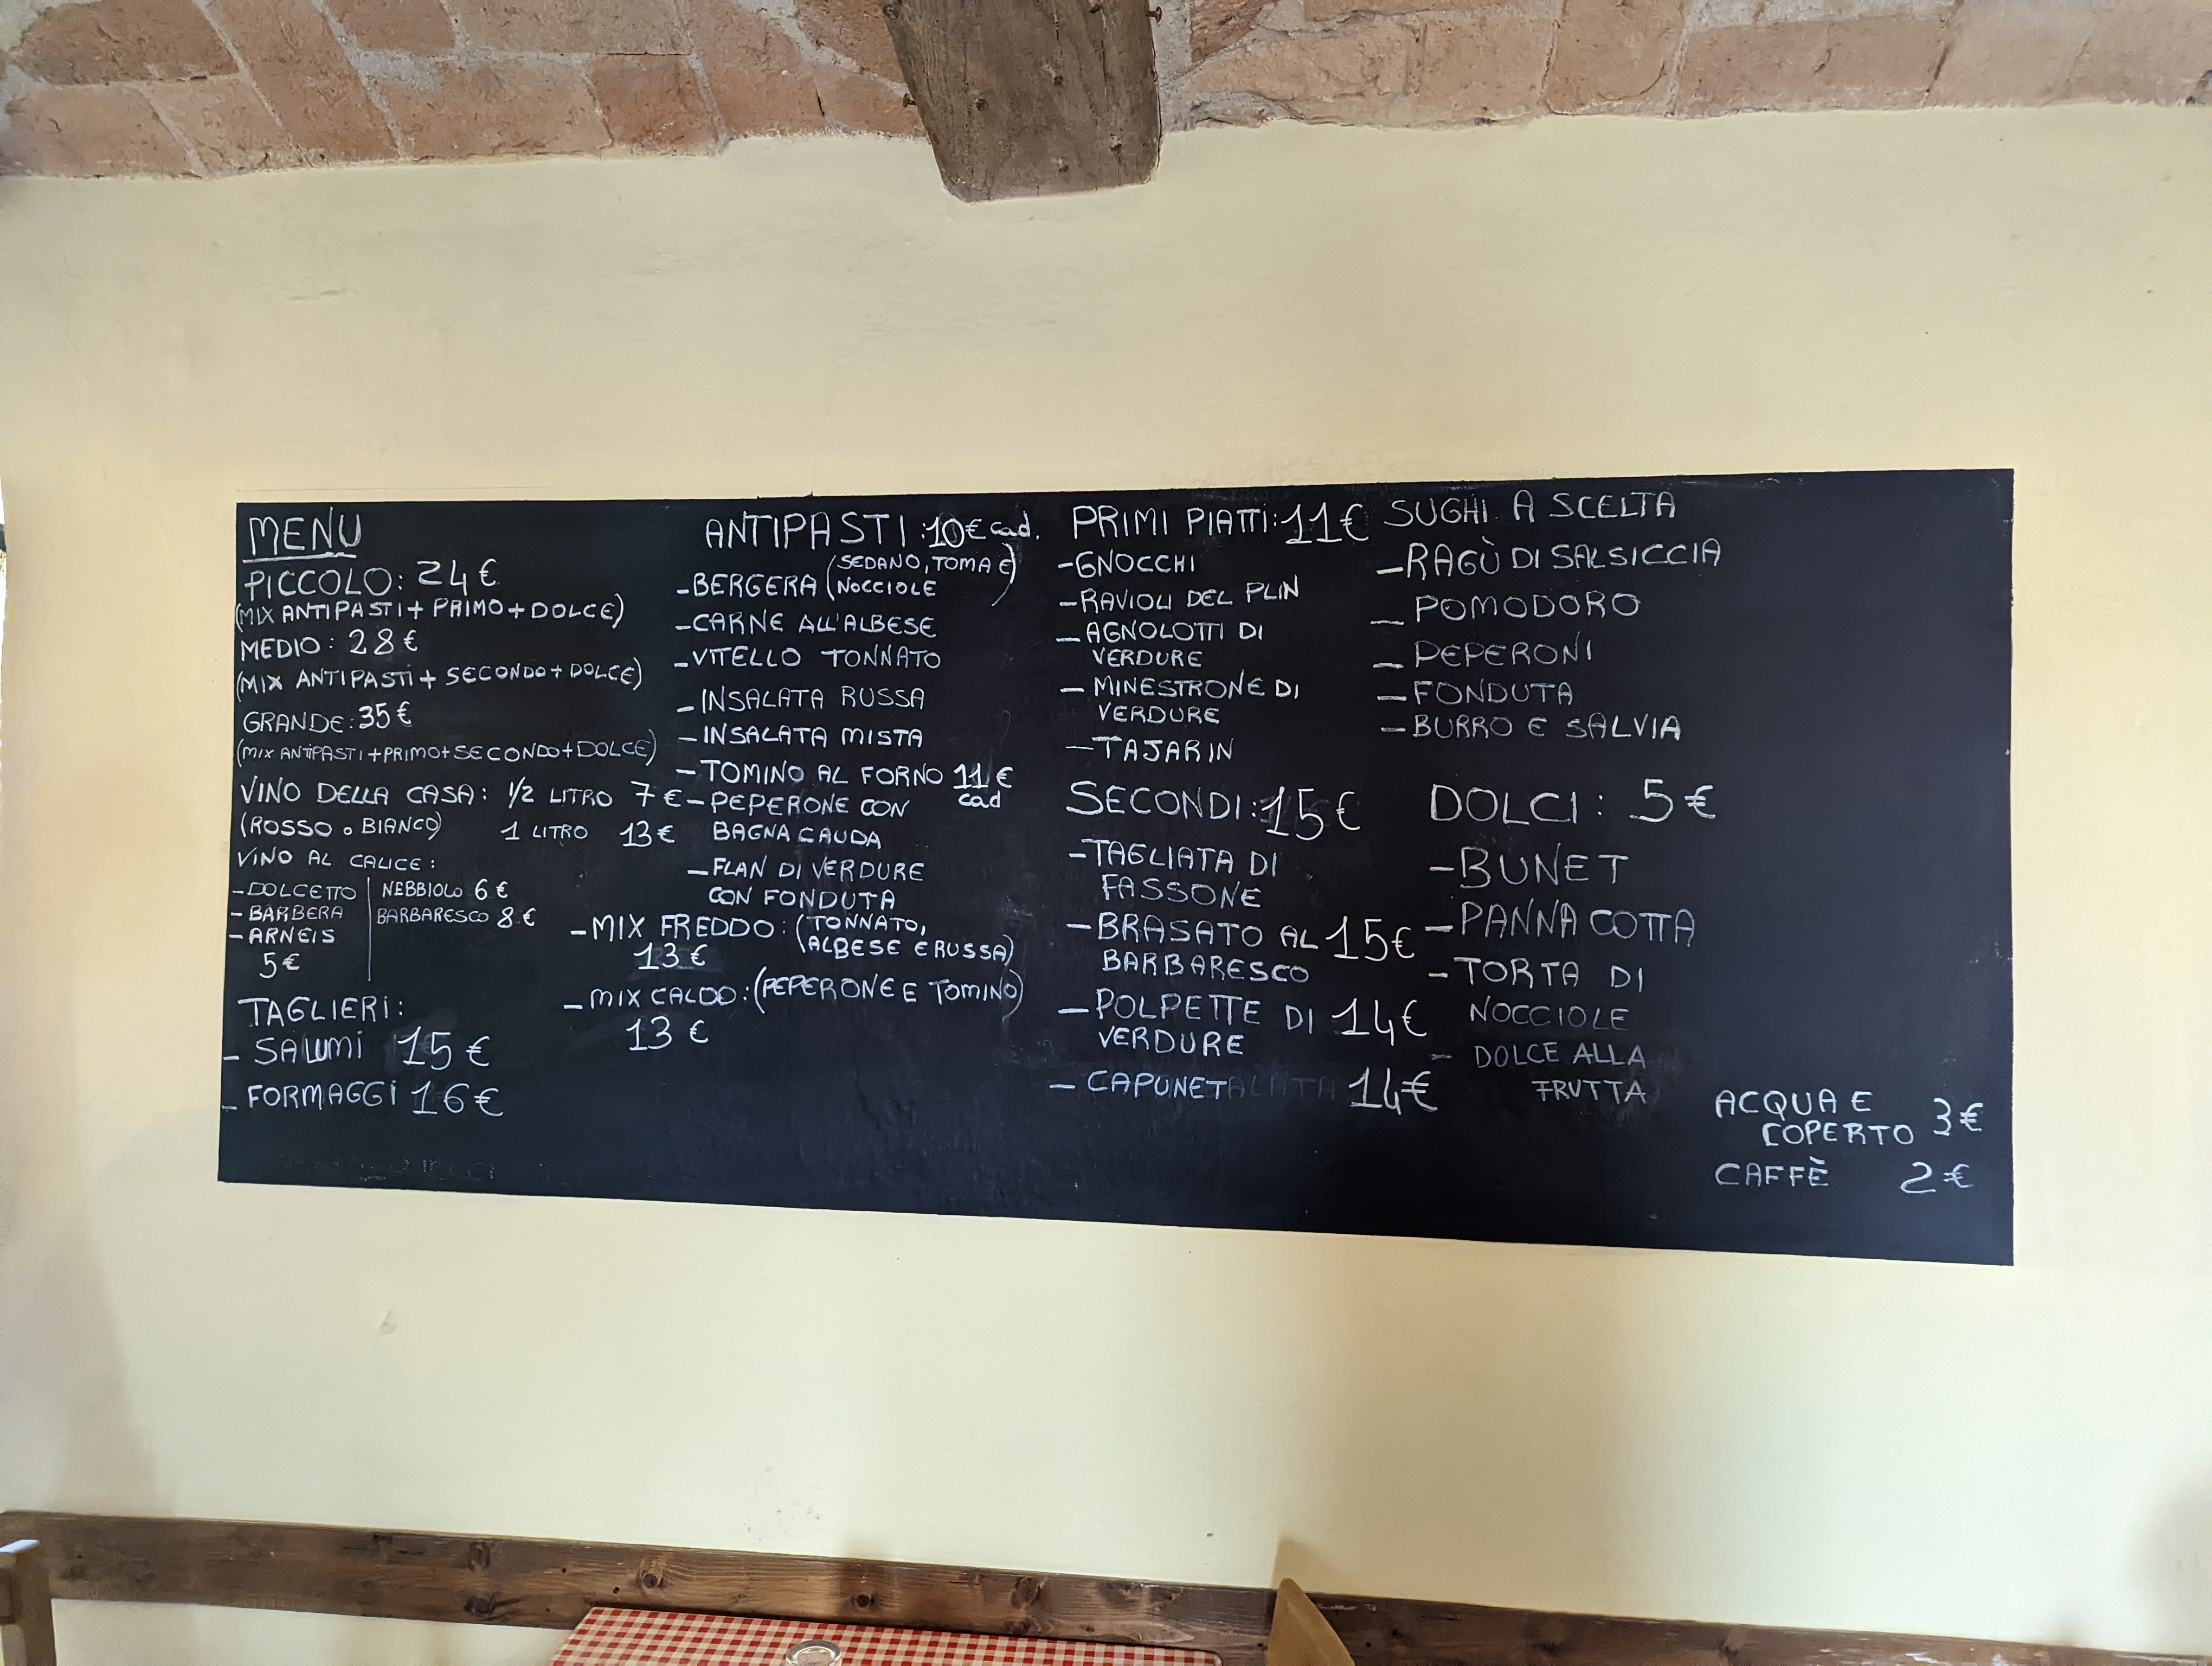 MENU
PICCOLO: 24€
(MIX ANTIPASTI + PRIMO + DOLCE)
MEDIO: 28€
(MIX ANTIPASTI + SECONDO + DOLCE)
GRANDE: 35€
(MIX ANTIPASTI + PRIMO + SECONDO + DOLCE)
VINO DELLA CASA: 1/2 LITRO 7€
(ROSSO o BIANCO) 1 LITRO 13€
VINO AL CALICE:
- DOLCETTO
- BARBERA
- ARNEIS
5€
NEBBIOLO 6€
BARBARESCO 8€
TAGLIERI:
- SALUMI 15€
- FORMAGGI 16€
ANTIPASTI: 10€ cad.
- BERGERA (SEDANO, TOMA E
NOCCIOLE)
- CARNE ALL'ALBESE
- VITELLO TONNATO
- INSALATA RUSSA
- INSALATA MISTA
- TOMINO AL FORNO 11€
cad
- PEPERONE CON
BAGNA CAUDA
- FLAN DI VERDURE
CON FONDUTA
- MIX FREDDO: (TONNATO,
ALBESE E RUSSA)
13€
- MIX CALDO: (PEPERONE E TOMINO)
13€
PRIMI PIATTI: 11€
- GNOCCHI
- RAVIOLI DEL PLIN
- AGNOLOTTI DI
VERDURE
- MINESTRONE DI
VERDURE
- TAJARIN
SECONDI: 15€
- TAGLIATA DI
FASSONE
- BRASATO AL 15€
BARBARESCO
- POLPETTE DI 14€
VERDURE
- CAPUNET 14€
SUGHI A SCELTA
- RAGÙ DI SALSICCIA
- POMODORO
- PEPERONI
- FONDUTA
- BURRO E SALVIA
DOLCI: 5€
- BUNET
- PANNA COTTA
- TORTA DI
NOCCIOLE
- DOLCE ALLA
FRUTTA
ACQUA E
COPERTO 3€
CAFFÈ 2€